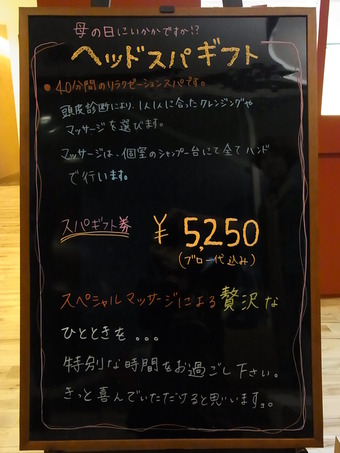 母の日にいかがですか!?
ヘッドスパギフト
● 40分間のリラクゼーションスパです。
頭皮診断により、1人1人に合ったクレンジングや
マッサージを選びます。
マッサージは、個室のシャンプー台にて全てハンド
で行います。
スパギフト券 ¥5,250
(ブロー代込み)
スペシャルマッサージによる贅沢な
ひとときを...
特別な時間をお過ごし下さい。
きっと喜んでいただけると思います。